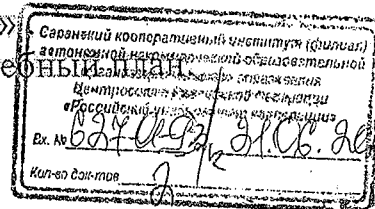 »
Саранский кооперативный институт (филиал)
автономной некоммерческой образовательной
ебный план
организации высшего образования
Центросоюза Российской Федерации
«Российский университет кооперации»
Вх. № 21.06.20
Кол-во док-тов 2